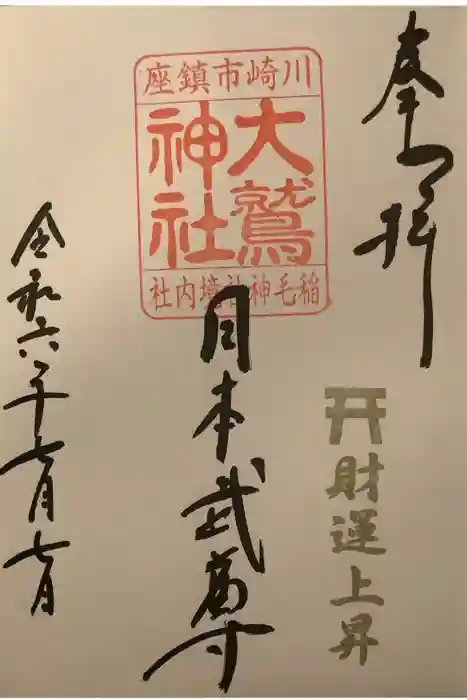 奉拝
川崎市鎮座
大鷲
神社
稲毛神社境内社
日本武尊
开財運上昇
令和六年七月七日